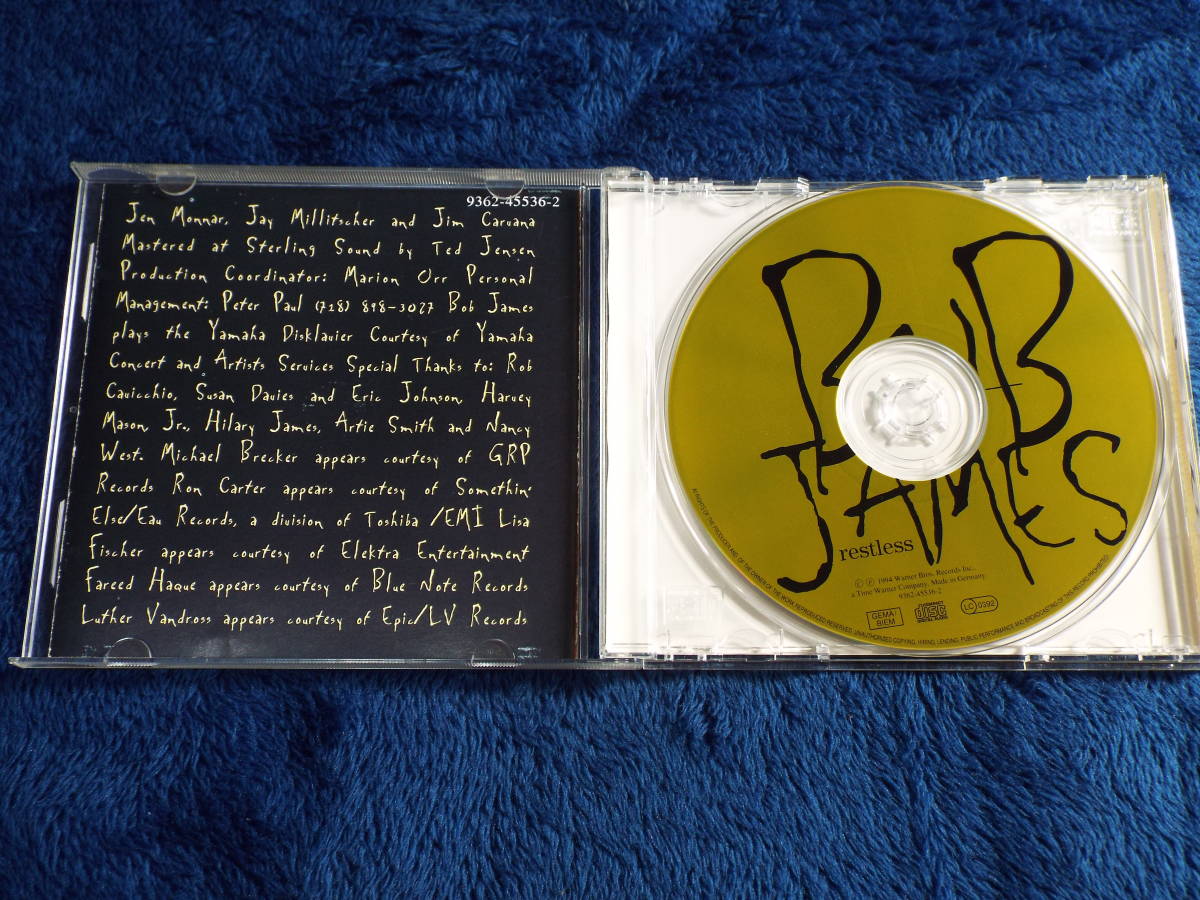 9362-45536-2
Jen Monnar, Jay Millitscher and Jim Caruana
Mastered at Sterling Sound by Ted Jensen
Production Coordinator: Marion Orr Personal
Management: Peter Paul (718) 898-3027 Bob James
plays the Yamaha Disklavier Courtesy of Yamaha
Concert and Artists Services Special Thanks to: Rob
Cavicchio, Susan Davies and Eric Johnson, Harvey
Mason, Jr., Hilary James, Artie Smith and Nancy
West. Michael Brecker appears courtesy of GRP
Records Ron Carter appears courtesy of Somethin'
Else/Eau Records, a division of Toshiba /EMI Lisa
Fischer appears courtesy of Elektra Entertainment
Fareed Haque appears courtesy of Blue Note Records
Luther Vandross appears courtesy of Epic/LV Records
BOB
JAMES
restless
© ℗ 1994 Warner Bros. Records Inc.,
a Time Warner Company. Made in Germany.
9362-45536-2
GEMA
BIEM
COMPACT
disc
DIGITAL AUDIO
LC 0392
ALL RIGHTS OF THE PRODUCER AND OF THE OWNER OF THE WORK REPRODUCED RESERVED. UNAUTHORIZED COPYING, HIRING, LENDING, PUBLIC PERFORMANCE AND BROADCASTING OF THIS RECORD PROHIBITED.